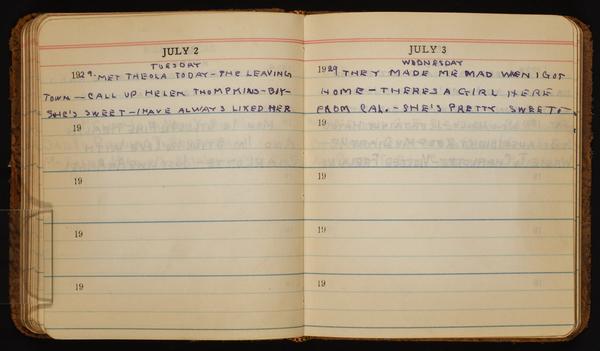 JULY 2
TUESDAY
1929. MET THEOLA TODAY - THE LEAVING
TOWN - CALL UP HELEN THOMPKINS - BOY -
SHE'S SWEET - I HAVE ALWAYS LIKED HER
19
19
19
19
JULY 3
WEDNESDAY
1929 THEY MADE ME MAD WHEN I GOT
HOME - THERES A GIRL HERE
FROM CAL. - SHE'S PRETTY SWEET -
19
19
19
19